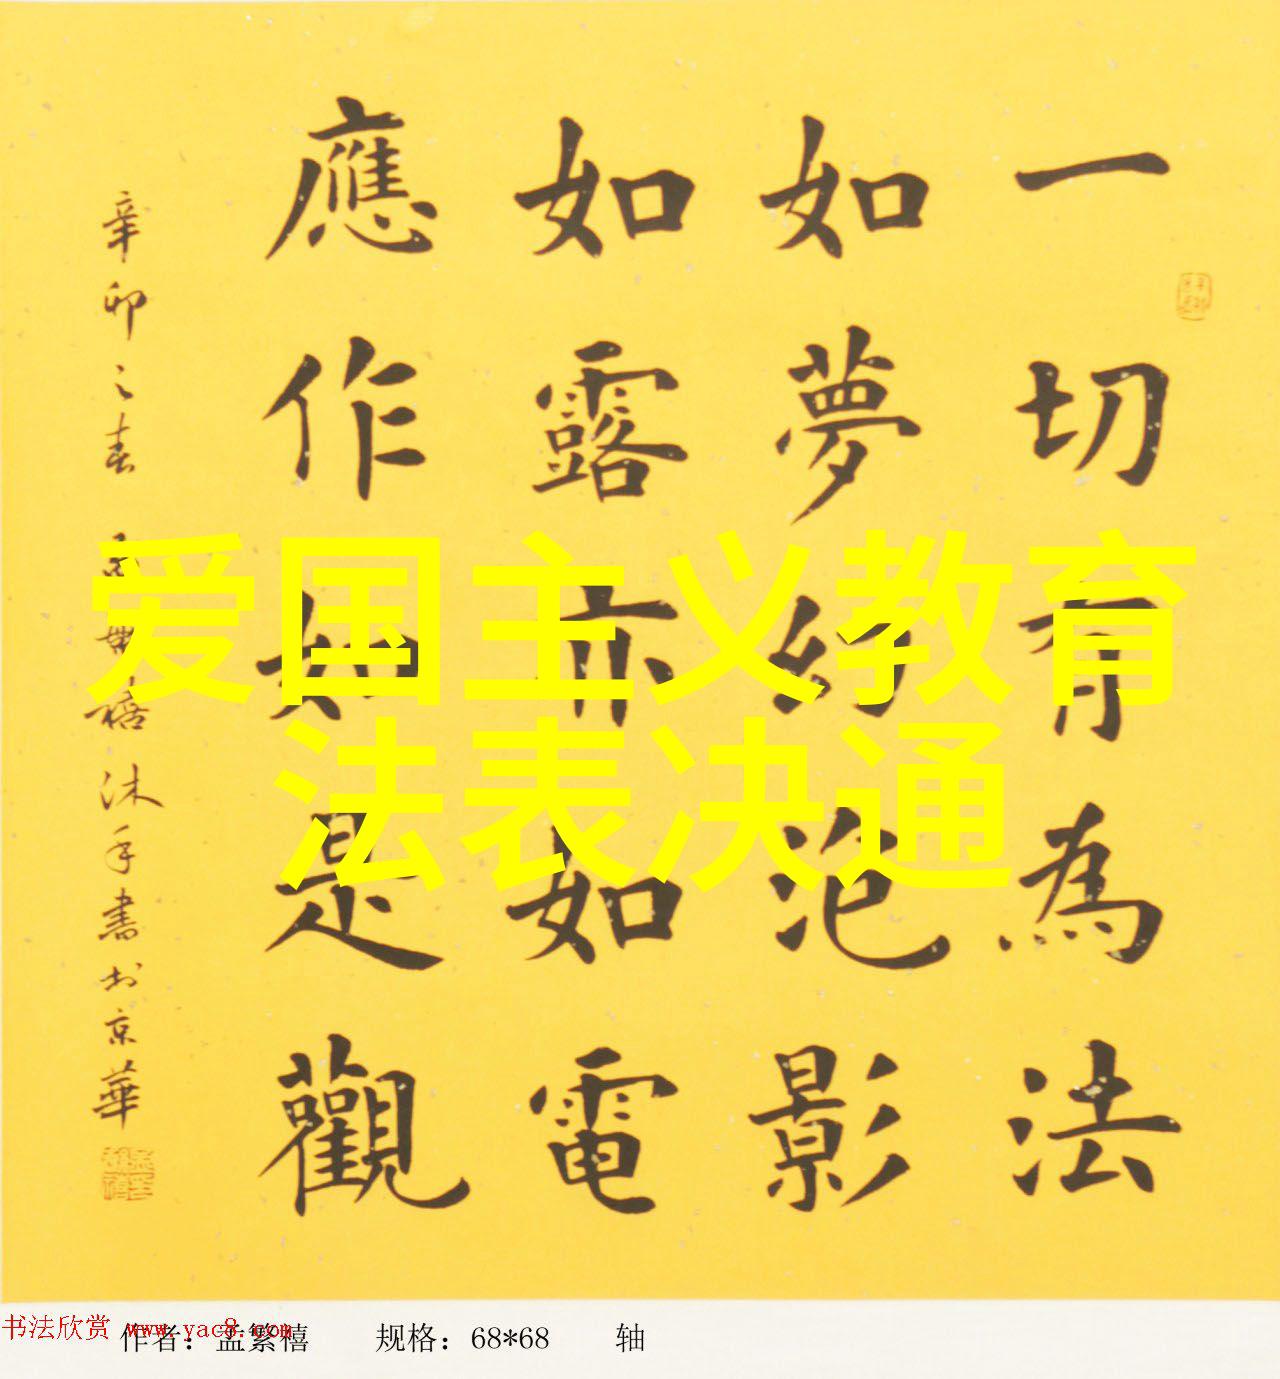 一切有為法
如夢幻泡影
如露亦如電
應作如是觀
辛卯之春 孟繁禧沐手書於京華
爱国主义教育
法表决通
书法欣赏 www.yac8.com
作者：孟繁禧 规格：68*68 轴